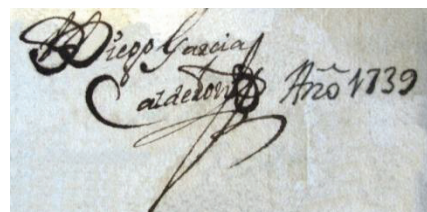 Diego Garcia
Calderon Año 1739